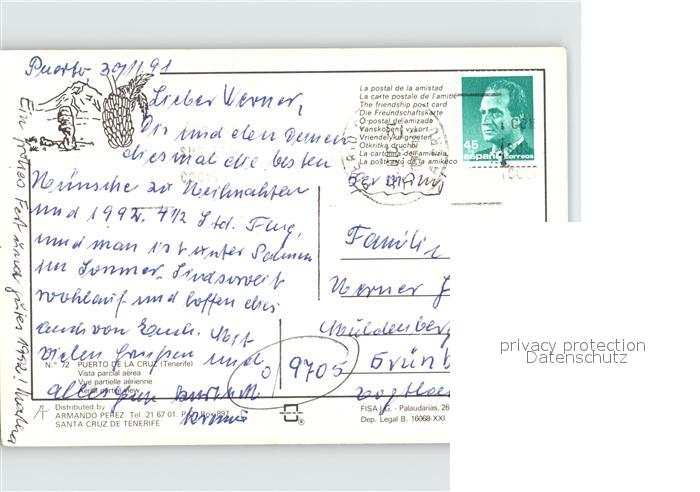 Puerto, 30.11.91
Lieber Werner,
Dir und den Deinen
diesmal die besten
Wünsche zu Weihnachten
und 1992. 4 1/2 Std. Flug,
und man ist unter Palmen
im Sommer. Sind soweit
wohlauf und hoffen dies
auch von Euch. Mit
vielen Grüßen und
alles gute
Ein frohes Fest und gutes 1992!
La postal de la amistad
La carte postale de l'amitié
The friendship post card
Die Freundschaftskarte
O postal de amizade
Vänskapens vykort
Vriendelijke groeten
Otkritka druchbi
La cartolina dell'amicizia
La postkarto de la amikeco
45
españa correos
Familie
Werner
9705
N.º 72 PUERTO DE LA CRUZ (Tenerife)
Vista parcial aérea
Vue partielle aérienne
Aerial partial view
Distributed by
ARMANDO PEREZ. Tel. 21 67 01. P.O. Box 897
SANTA CRUZ DE TENERIFE
FISA I.G. - Palaudarias, 26
Dep. Legal B. 16068-XXI
privacy protection
Datenschutz